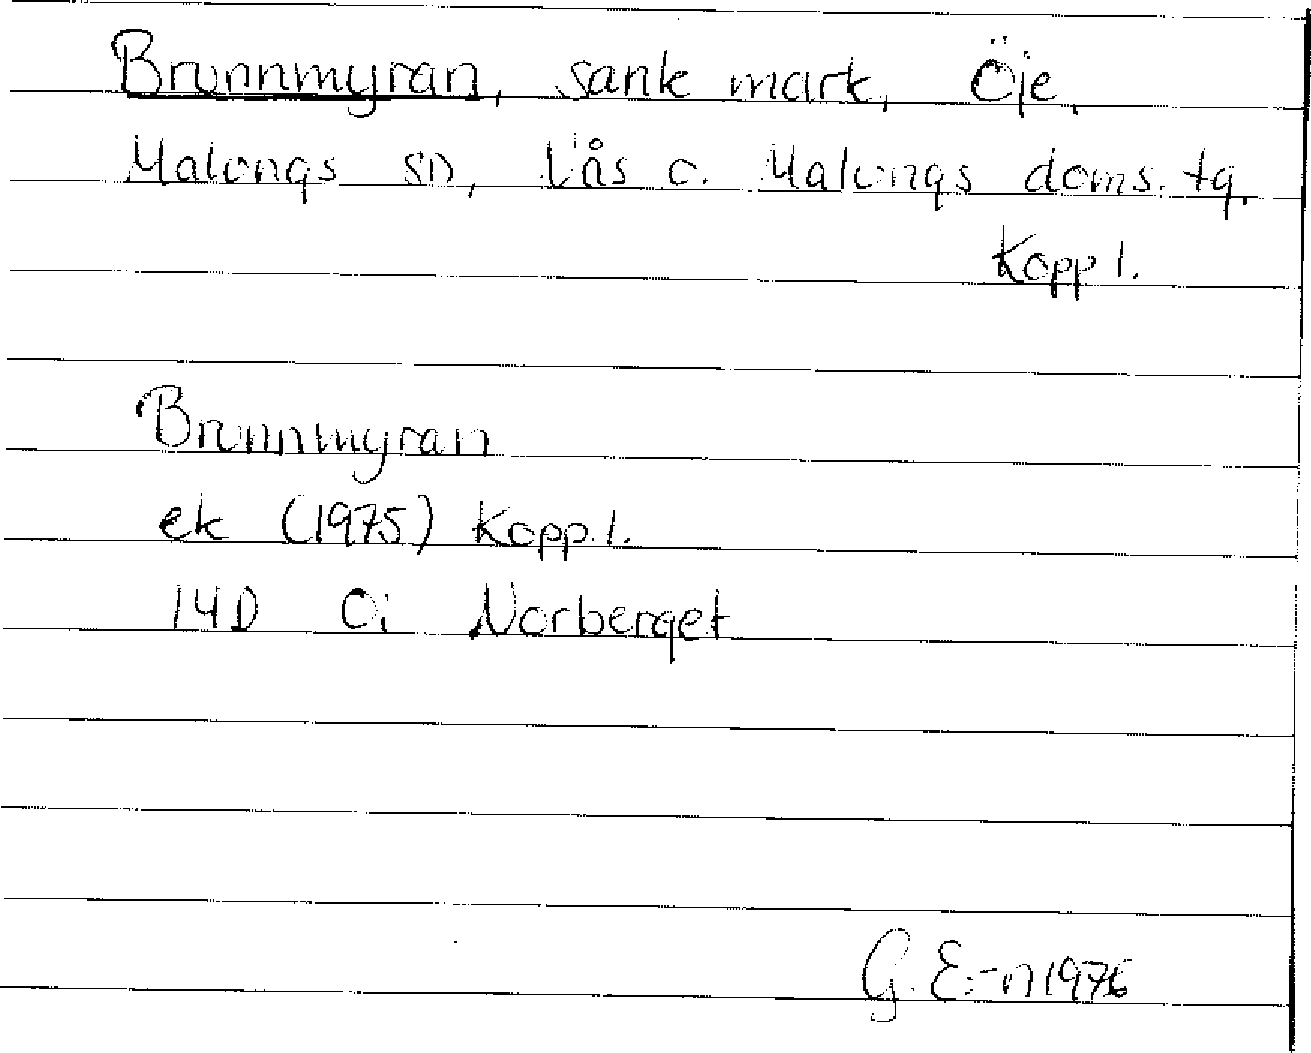 Brunnmyran, sank mark, Öje,
Malungs sn, Vås o. Malungs doms. tg.
Kopp l.
Brunnmyran
ek (1975) Kopp. l.
14D 0i Norberget
G. E:-n 1976